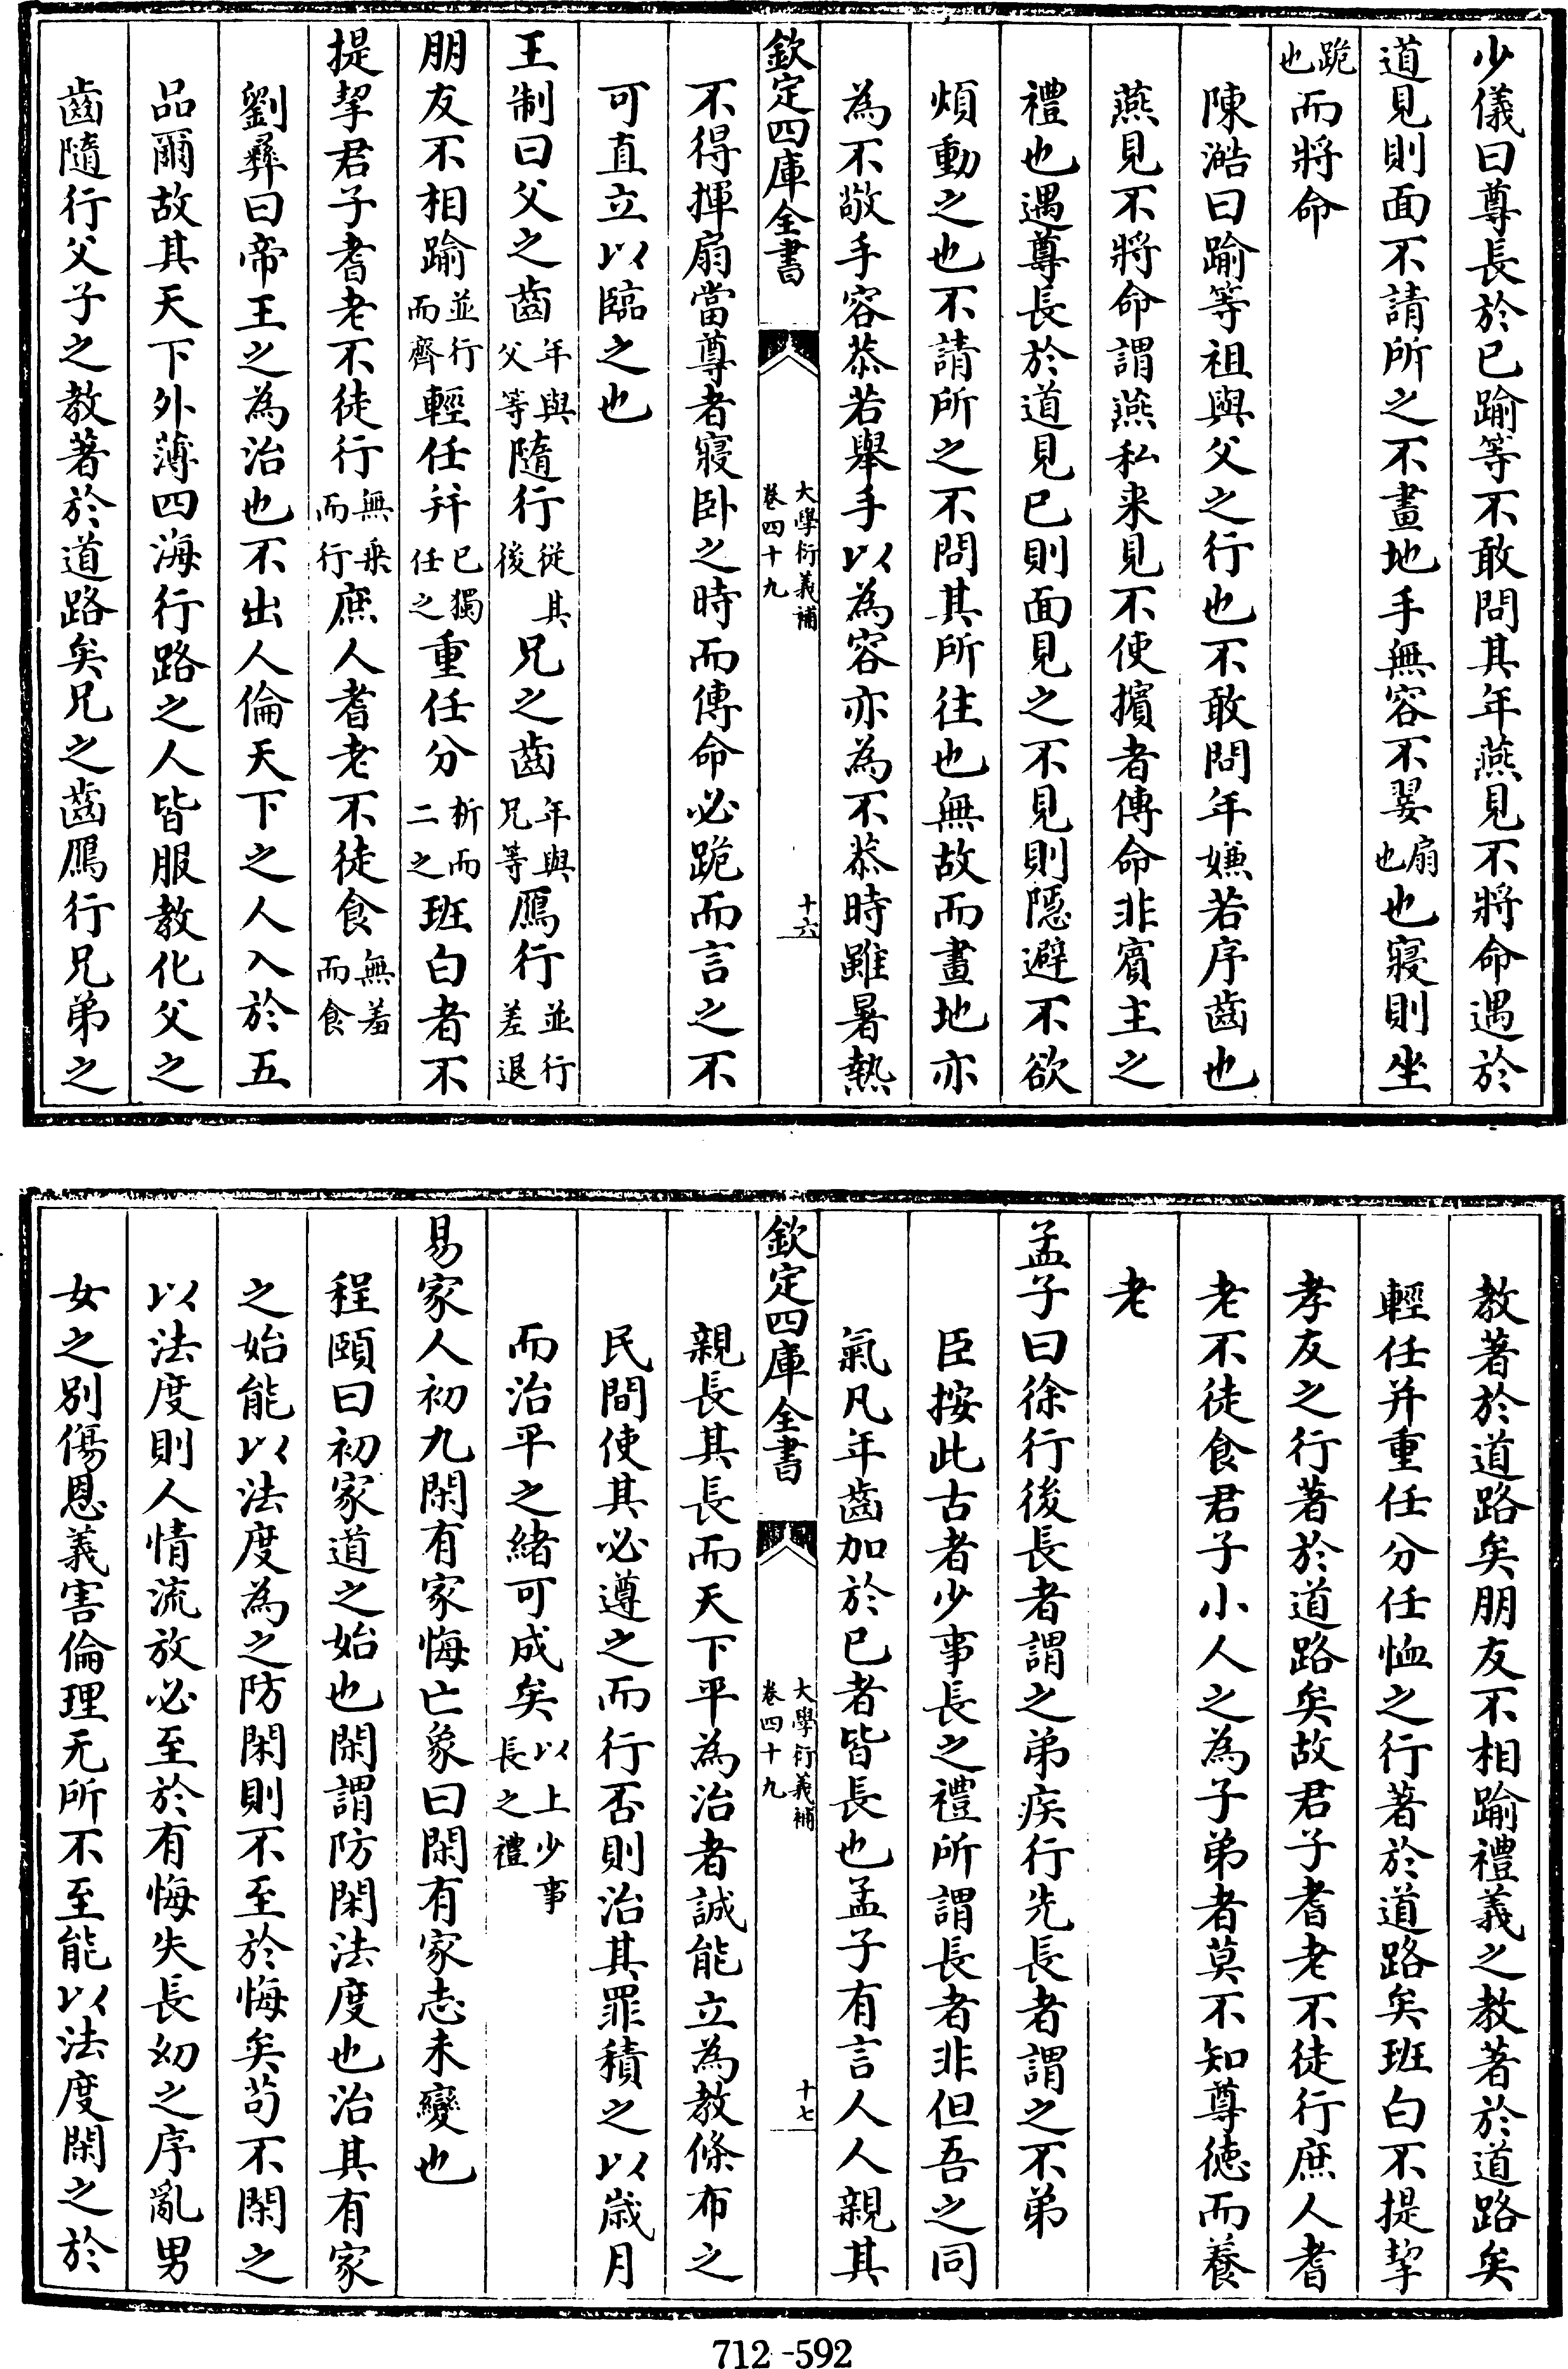 少儀曰尊長於已踰等不敢問其年燕見不將命遇於
道見則面不請所之不畫地手無容不翣扇也也寢則坐
跪也而將命
陳澔曰踰等祖與父之行也不敢問年嫌若序齒也
燕見不將命謂燕私来見不使擯者傳命非賓主之
禮也遇尊長於道見已則面見之不見則隱避不欲
煩動之也不請所之不問其所往也無故而畫地亦
為不敬手容恭若舉手以為容亦為不恭時雖暑熱
欽定四庫全書 大學衍義補 卷四十九 十六
不得揮扇當尊者寢卧之時而傳命必跪而言之不
可直立以臨之也
王制曰父之齒年與父等隨行從其後兄之齒年與兄等鴈行並行差退
朋友不相踰並行而齊輕任并已獨任之重任分析而二之班白者不
提挈君子耆老不徒行無乗而行庶人耆老不徒食無羞而食
劉彝曰帝王之為治也不出人倫天下之人入於五
品爾故其天下外薄四海行路之人皆服教化父之
齒隨行父子之教著於道路矣兄之齒鴈行兄弟之
教著於道路矣朋友不相踰禮義之教著於道路矣
輕任并重任分任恤之行著於道路矣班白不提挈
孝友之行著於道路矣故君子耆老不徒行庶人耆
老不徒食君子小人之為子弟者莫不知尊徳而養
老
孟子曰徐行後長者謂之弟疾行先長者謂之不弟
臣按此古者少事長之禮所謂長者非但吾之同
氣凡年齒加於已者皆長也孟子有言人人親其
欽定四庫全書 大學衍義補 卷四十九 十七
親長其長而天下平為治者誠能立為教條布之
民間使其必遵之而行否則治其罪積之以嵗月
而治平之緒可成矣以上少事長之禮
易家人初九閑有家悔亡象曰閑有家志未變也
程頤曰初家道之始也閑謂防閑法度也治其有家
之始能以法度為之防閑則不至於悔矣苟不閑之
以法度則人情流放必至於有悔失長幼之序亂男
女之别傷恩義害倫理无所不至能以法度閑之於
712-592